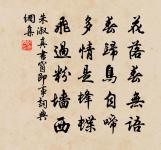 花落春無語
春歸鳥自啼
多情是蜂蝶
飛過粉墻西
朱淑真書窗即事詞典
網集